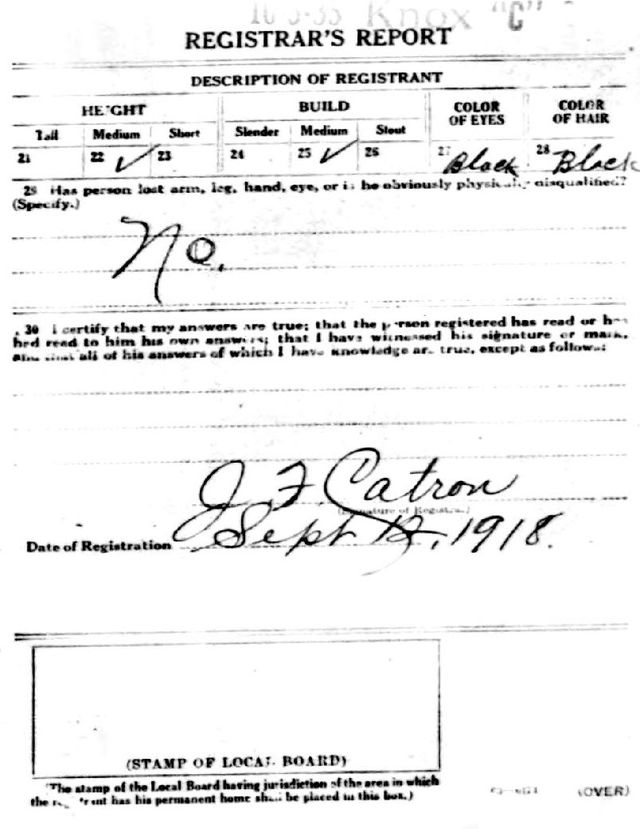 16-3-35 Knox "C"
REGISTRAR'S REPORT
DESCRIPTION OF REGISTRANT
HEIGHT BUILD COLOR OF EYES COLOR OF HAIR
Tall Medium Short Slender Medium Stout
21 22 ✓ 23 24 25 ✓ 26 27 Black 28 Black
29 Has person lost arm, leg, hand, eye, or is he obviously physically disqualified?
(Specify.)
No.
30 I certify that my answers are true; that the person registered has read or has
had read to him his own answers; that I have witnessed his signature or mark,
and that all of his answers of which I have knowledge are true, except as follows:
J. F. Catron
(Signature of Registrar)
Date of Registration Sept 12, 1918.
(STAMP OF LOCAL BOARD)
(The stamp of the Local Board having jurisdiction of the area in which
the registrant has his permanent home shall be placed in this box.)
(OVER)